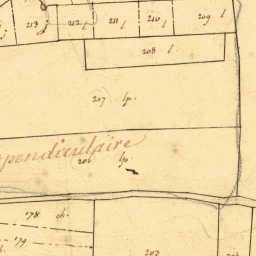 213 j 212 l 211 l 210 l 209 l
208 l
207 lp
pendiculaire
206 lp
178 ch
179
203